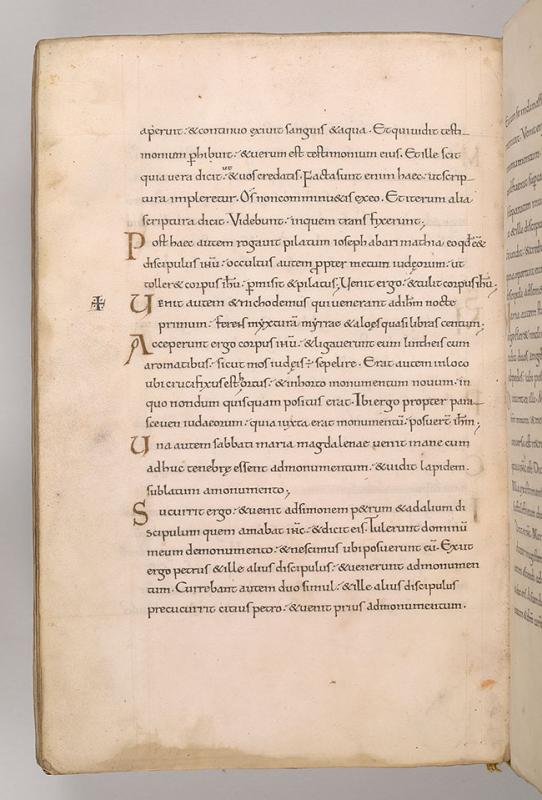 aperuit. &continuo exiuit sanguis &aqua. Etquiuidit testi-
monium phibuit. &uerum est testimonium eius. Etille scit
quia uera dicit. ut &uoscredatis. Factasunt enim haec. utscrip-
tura impleretur. Os noncomminu&is exeo. Etiterum alia
scriptura dicit. Videbunt. inquem transfixerunt;
Post haec autem rogauit pilatum ioseph abarimathia. eoqđ
discipulus ihu. occultus autem propter metum iudęorum. ut
toller& corpus ihu. pmisit &pilatus. Uenit ergo. &tulit corpus ihu;
Uenit autem &nichodemus qui uenerat adihm nocte
primum. ferens myxturā myrrae &aloes quasi libras centum;
Acceperunt ergo corpus ihu. &ligauerunt eum linteis cum
aromatibus. sicut mos iudęis. sepelire. Erat autem inloco
ubi crucifixus est ortus. &inhorto monumentum nouum. in
quo nondum quisquam positus erat. Ibi ergo propter para-
sceuen iudaeorum. quia iuxta erat monumentū. posuert ihm;
Una autem sabbati maria magdalenae uenit mane cum
adhuc tenebrę essent admonumentum. &uidit lapidem.
sublatum amonumento;
Sucurrit ergo. &uenit adsimonem p&rum &adalium di
scipulum quem amabat ihc. &dicit eis. Tulerunt dominū
meum demonumento. &nescimus ubi posuerunt eū. Exiit
ergo petrus &ille alius discipulus. &uenerunt admonumen
tum. Currebant autem duo simul. &ille alius discipulus
precucurrit citius petro. &uenit prius admonumentum.